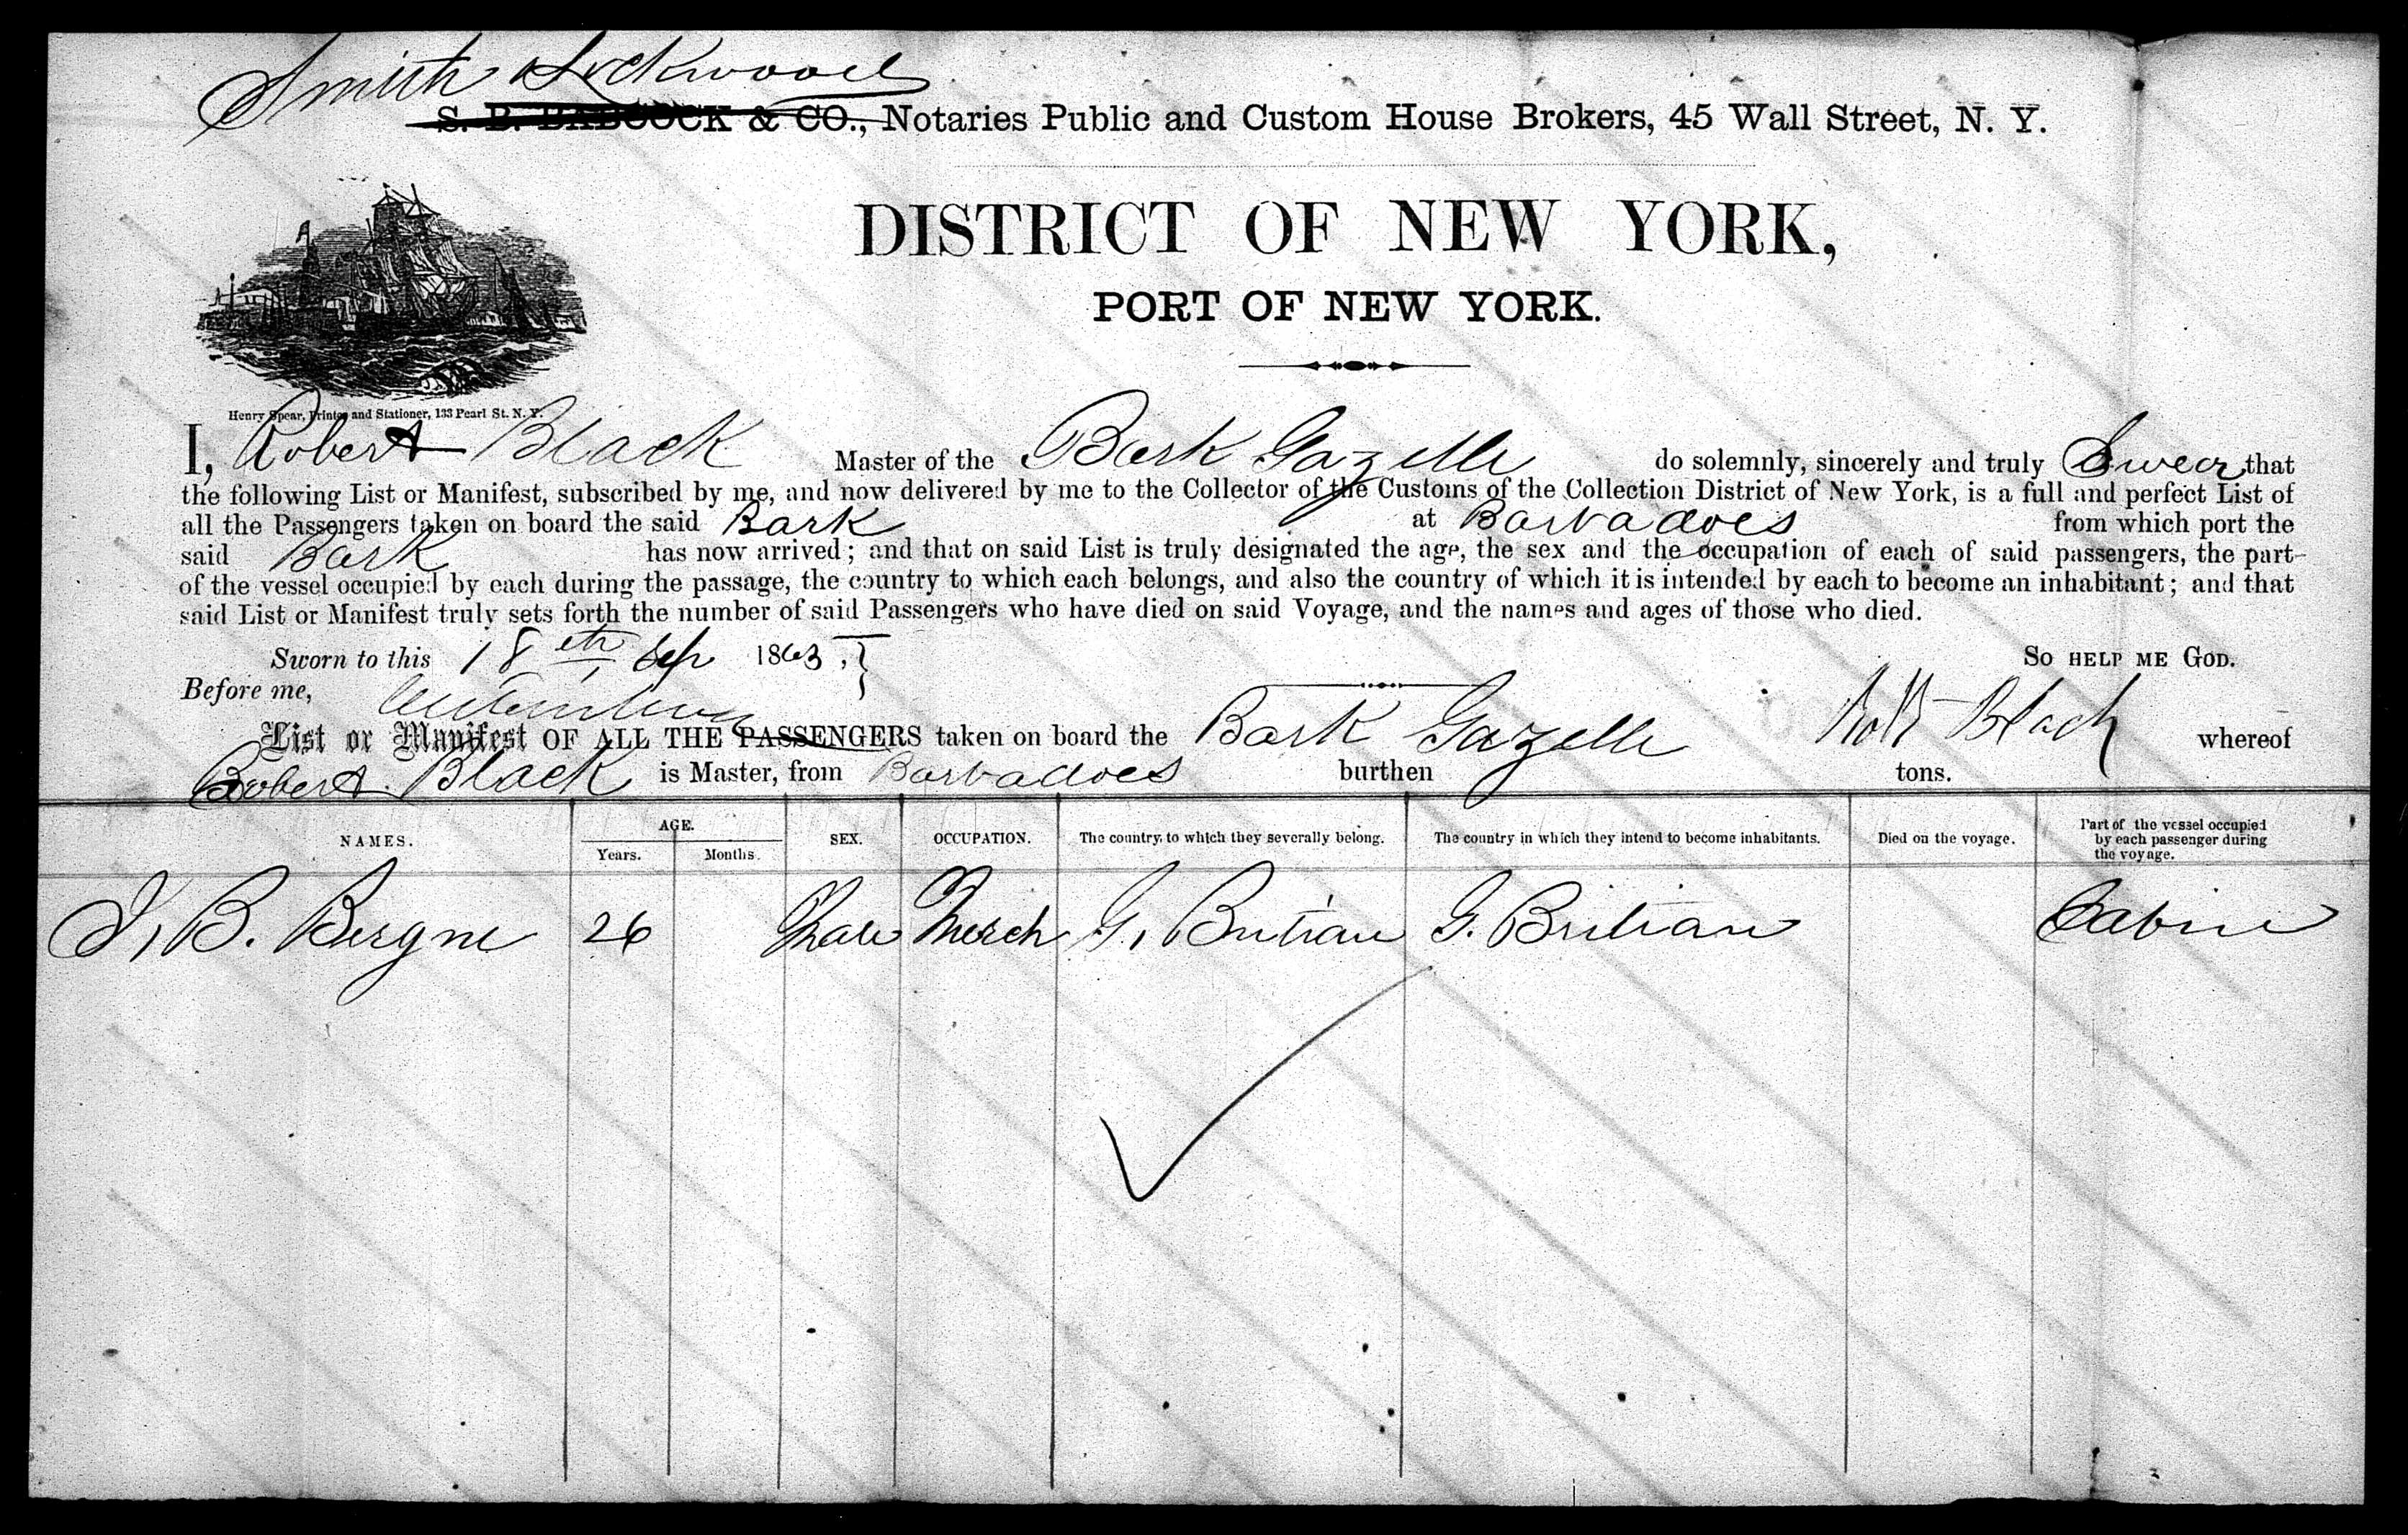 Smith & Lockwood
S. B. BABCOCK & CO., Notaries Public and Custom House Brokers, 45 Wall Street, N. Y.
DISTRICT OF NEW YORK,
PORT OF NEW YORK.
Henry Spear, Printer and Stationer, 133 Pearl St. N. Y.
I, Robert Black Master of the Bark Gazelle do solemnly, sincerely and truly Swear that
the following List or Manifest, subscribed by me, and now delivered by me to the Collector of the Customs of the Collection District of New York, is a full and perfect List of
all the Passengers taken on board the said Bark at Barbadoes from which port the
said Bark has now arrived; and that on said List is truly designated the age, the sex and the occupation of each of said passengers, the part
of the vessel occupied by each during the passage, the country to which each belongs, and also the country of which it is intended by each to become an inhabitant; and that
said List or Manifest truly sets forth the number of said Passengers who have died on said Voyage, and the names and ages of those who died.
Sworn to this 18th Sep 1863, SO HELP ME GOD.
Before me,
Robt Black
List or Manifest OF ALL THE PASSENGERS taken on board the Bark Gazelle whereof
Robert Black is Master, from Barbadoes burthen tons.
NAMES. AGE. Years. Months. SEX. OCCUPATION. The country to which they severally belong. The country in which they intend to become inhabitants. Died on the voyage. Part of the vessel occupied by each passenger during the voyage.
J, B. Bergne 26 Male Merch G, Britian G. Britian Cabin